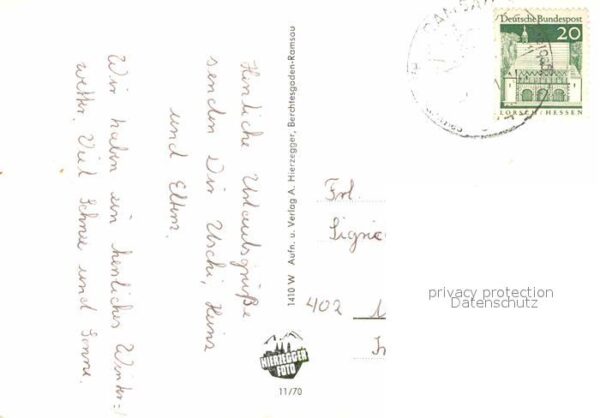 Herzliche Urlaubsgrüße
senden Dir Uschi, Heinz
und Eltern.
Wir haben ein herrliches Winter-
wetter. Viel Schnee und Sonne.
1410 W Aufn. u. Verlag A. Hierzegger, Berchtesgaden-Ramsau
HIERZEGGER
FOTO
11/70
Deutsche Bundespost
20
LORSCH/HESSEN
RAMSAU
Frl.
402
privacy protection
Datenschutz